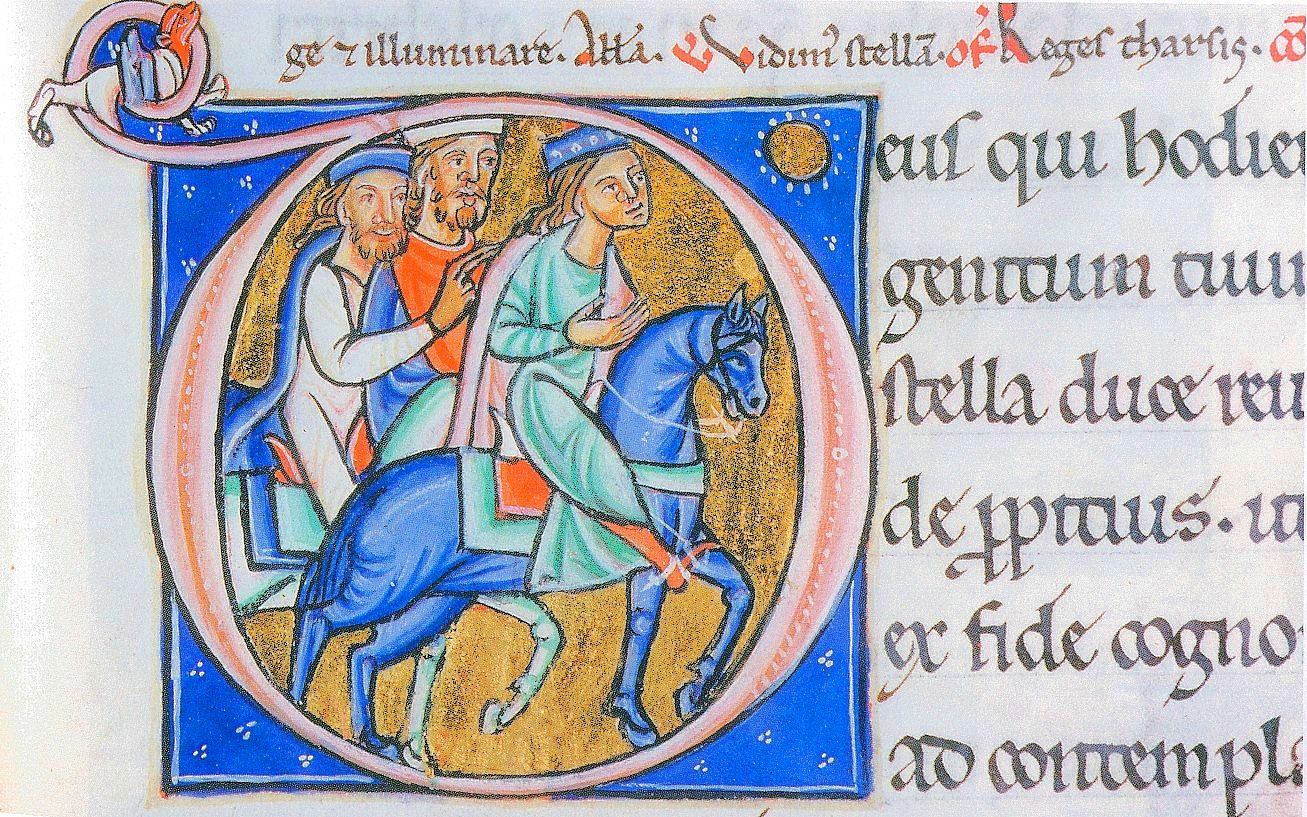 ge ⁊ illuminare. Alla. Vidim᷒ stellā. of Reges tharsis. cō
Deus qui hodier
gentium tuu
stella duce reu
de ꝓpitius. ut
ex fide cogno
ad contempla